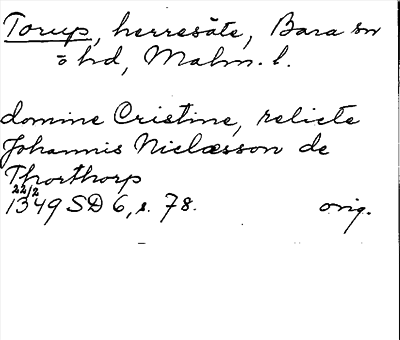 Torup, herresäte, Bara sn
ō hd, Malm. l.
domine Cristine, relicte
Johannis Niclæsson de
Thorthorp
22/2
1349 SD 6, s. 78. orig.